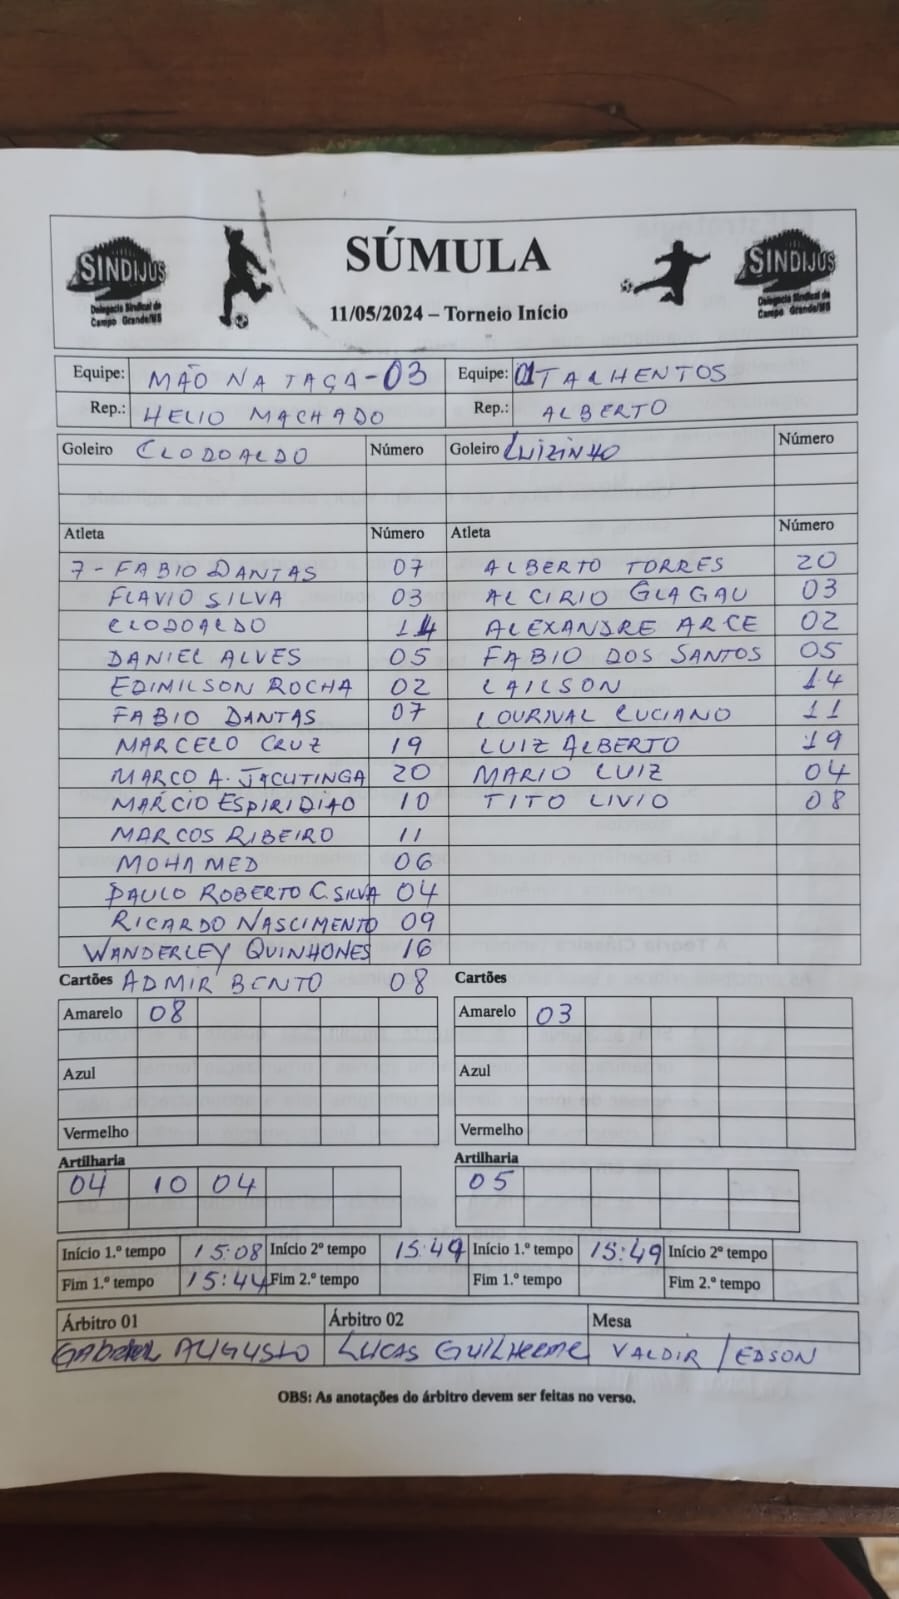 SINDIJUS
Delegacia Sindical de
Campo Grande/MS
SÚMULA
11/05/2024 – Torneio Início
SINDIJUS
Delegacia Sindical de
Campo Grande/MS
Equipe: MÃO NA TAÇA-03 Equipe: 01 TALHENTOS
Rep.: HELIO MACHADO Rep.: ALBERTO
Goleiro CLODOALDO Número Goleiro LUIZINHO Número
Atleta Número Atleta Número
7 - FABIO DANTAS 07 ALBERTO TORRES 20
FLAVIO SILVA 03 ALCIRIO GLAGAU 03
CLODOALDO 14 ALEXANDRE ARCE 02
DANIEL ALVES 05 FABIO DOS SANTOS 05
EDIMILSON ROCHA 02 LAILSON 14
FABIO DANTAS 07 LOURIVAL LUCIANO 11
MARCELO CRUZ 19 LUIZ ALBERTO 19
MARCO A. JACUTINGA 20 MARIO LUIZ 04
MÁRCIO ESPIRIDIÃO 10 TITO LIVIO 08
MARCOS RIBEIRO 11
MOHAMED 06
PAULO ROBERTO C. SILVA 04
RICARDO NASCIMENTO 09
WANDERLEY QUINHONES 16
Cartões ADMIR BENTO 08 Cartões
Amarelo 08 Amarelo 03
Azul Azul
Vermelho Vermelho
Artilharia Artilharia
04 10 04 05
Início 1.º tempo 15:08 Início 2º tempo 15:49 Início 1.º tempo 15:49 Início 2º tempo
Fim 1.º tempo 15:44 Fim 2.º tempo Fim 1.º tempo Fim 2.º tempo
Árbitro 01 Árbitro 02 Mesa
GABRIEL AUGUSTO LUCAS GUILHERME VALDIR / EDSON
OBS: As anotações do árbitro devem ser feitas no verso.